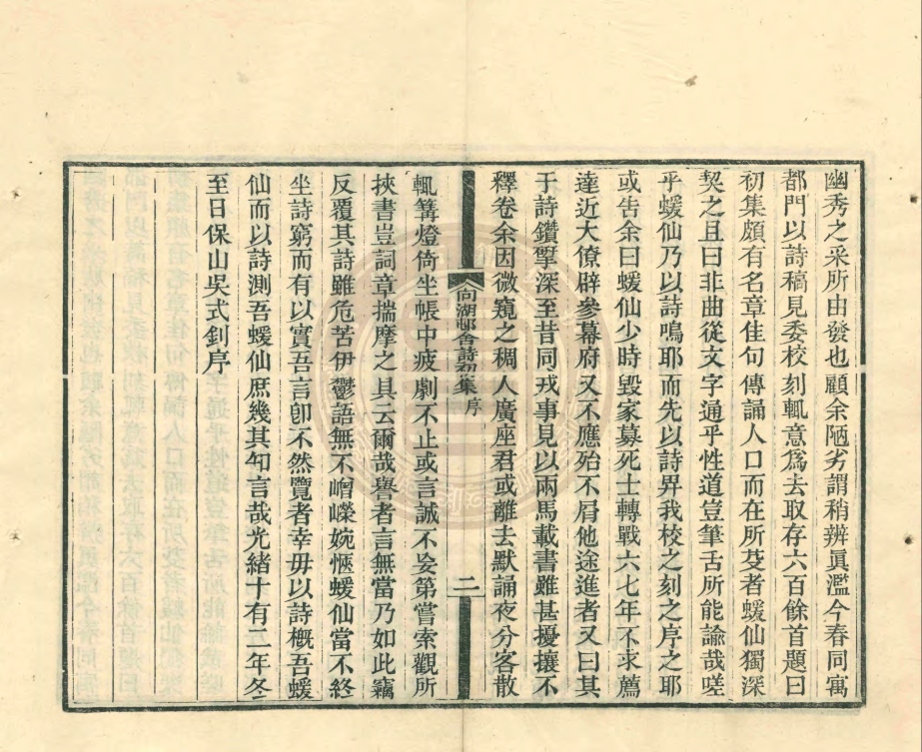 幽秀之采所由發也顧余陋劣謂稍辨眞濫今春同寓
都門以詩稿見委校刻輒意爲去取存六百餘首題曰
初集頗有名章佳句傳誦人口而在所芟者蝯仙獨深
契之且曰非曲從文字通乎性道豈筆舌所能諭哉嗟
乎蝯仙乃以詩鳴耶而先以詩畀我校之刻之序之耶
或告余曰蝯仙少時毀家募死士轉戰六七年不求薦
達近大僚辟參幕府又不應殆不屑他途進者又曰其
于詩鑽揅深至昔同戎事見以兩馬載書雖甚擾攘不
釋卷余因微窺之稠人廣座君或離去默誦夜分客散
向湖邨舍詩初集 序 二
輒篝燈倚坐帳中疲劇不止或言誠不妄第嘗索觀所
挾書豈詞章揣摩之具云爾哉譽者言無當乃如此竊
反覆其詩雖危苦伊鬱語無不崢嶸婉愜蝯仙當不終
坐詩窮而有以實吾言卽不然覽者幸毋以詩概吾蝯
仙而以詩測吾蝯仙庶幾其知言哉光緒十有二年冬
至日保山吳式釗序